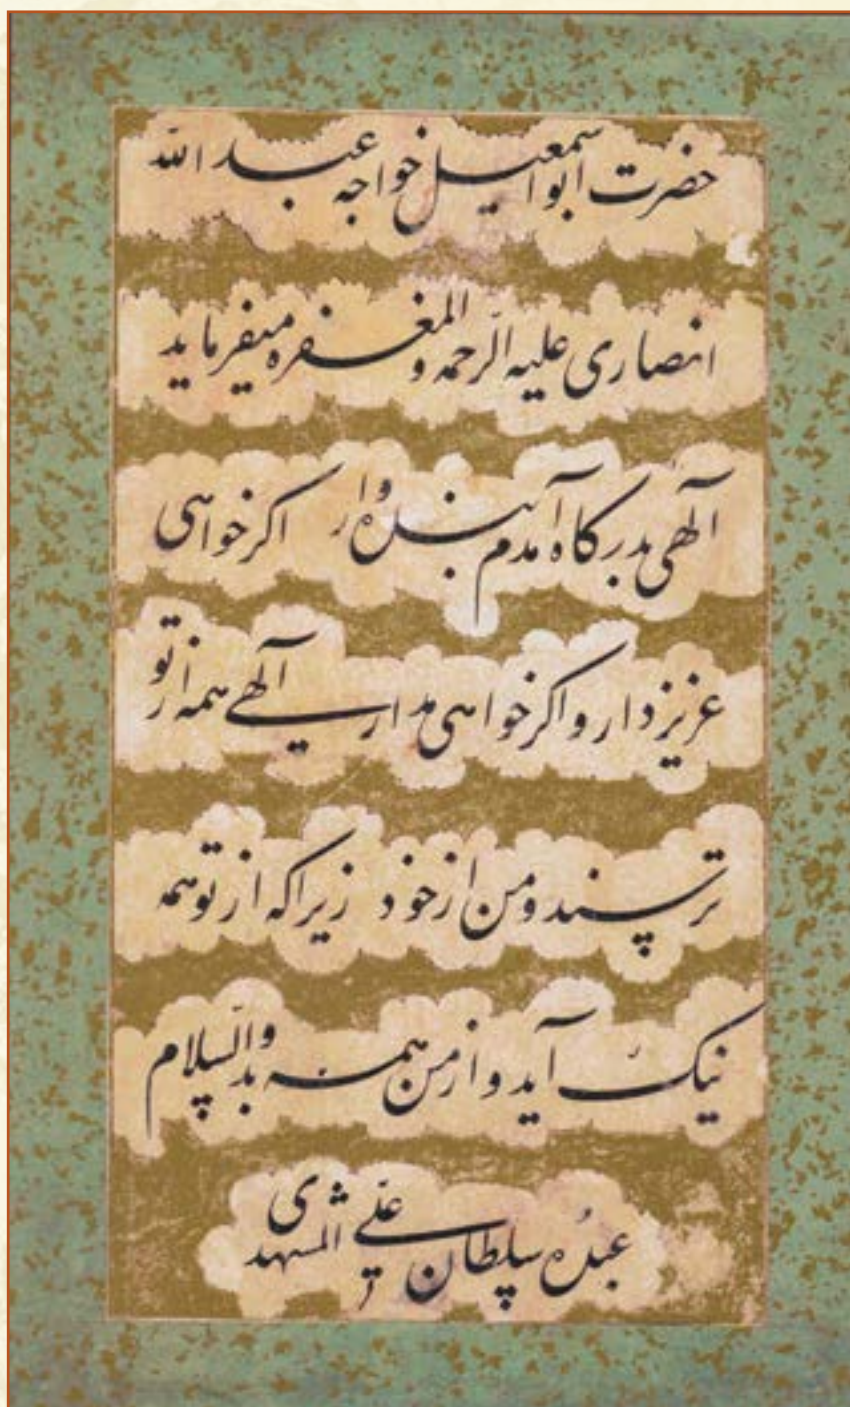 حضرت ابو اسمعیل خواجه عبد اللّه
انصاری علیه الرّحمه و المغفره میفرماید
الٓهی بدرکاه آمدم بنده وار اکر خواهی
عزیز دار و اکر خواهی مدار الٓهی همه از تو
ترسند و من از خود زیراکه از تو همه
نیک آید و از من همه بد و السّلام
عبدُه سلطان علی المشهدی